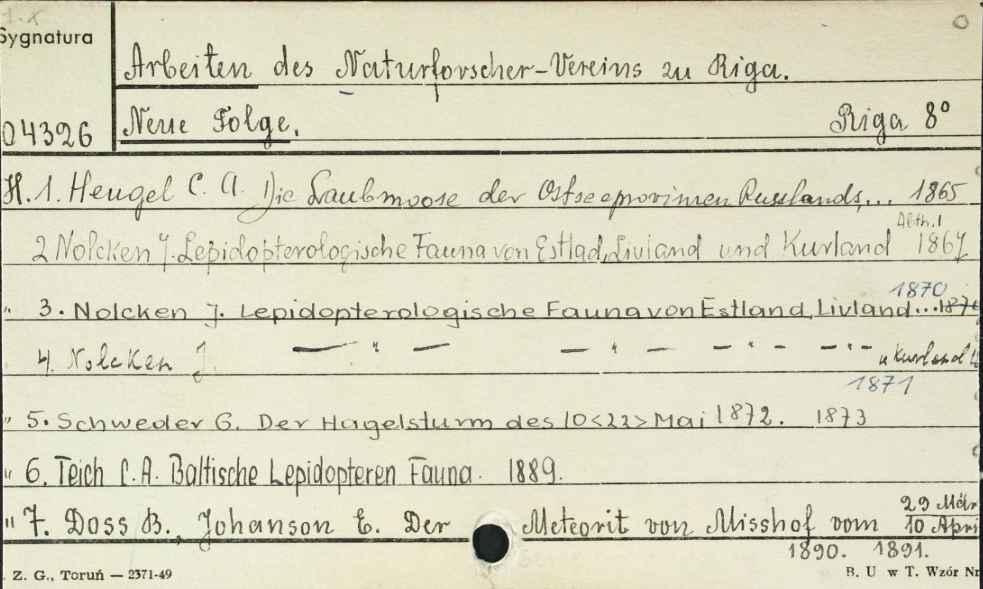 1.X
Sygnatura
Arbeiten des Naturforscher-Vereins zu Riga.
04326 Neue Folge. Riga 8°
H. 1. Heugel C. A. Die Laubmoose der Ostseeprovinzen Russlands... 1865
Abth. I
2 Nolcken J. Lepidopterologische Fauna von Estlad, Livland und Kurland 1867
1870
" 3. Nolcken J. Lepidopterologische Fauna von Estland, Livland...
4. Nolcken J — " — — " — — " — — " — u Kurland
1871
" 5. Schweder G. Der Hagelsturm des 10<22> Mai 1872. 1873
" 6. Teich C. A. Baltische Lepidopteren Fauna. 1889.
29 Mär
" 7. Doss B., Johanson E. Der Meteorit von Misshof vom 10 Apri
1890. 1891.
Z. G., Toruń — 2371-49 B. U w T. Wzór Nr